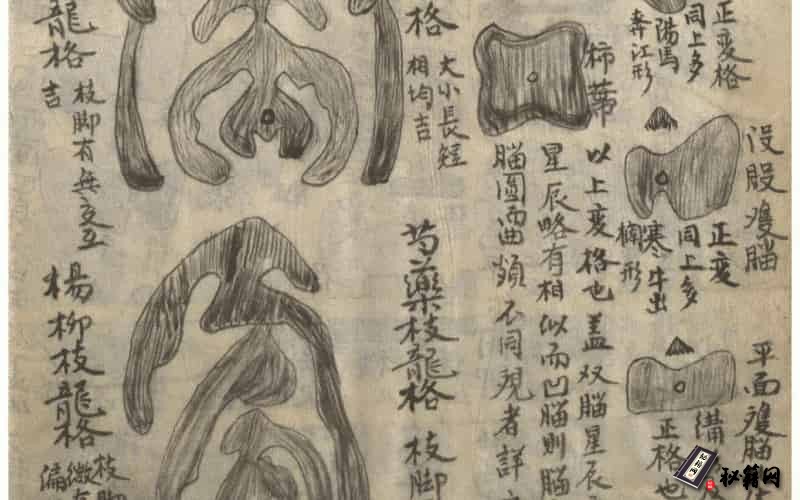 正変格
同上多
陽馬
奔江形
没股双腦
正変
同上多
寒牛出
欄形
平面双腦
備
正格也
柿蒂
以上変格也盖双腦星辰
星辰略有相似而凹腦則腦
腦圓而曲頗不同观者詳
格
大小長短
相均吉
芍藥枝龍格
枝脚
龍格
枝脚有無交互
吉
楊柳枝龍格
枝脚
偏
秘籍网